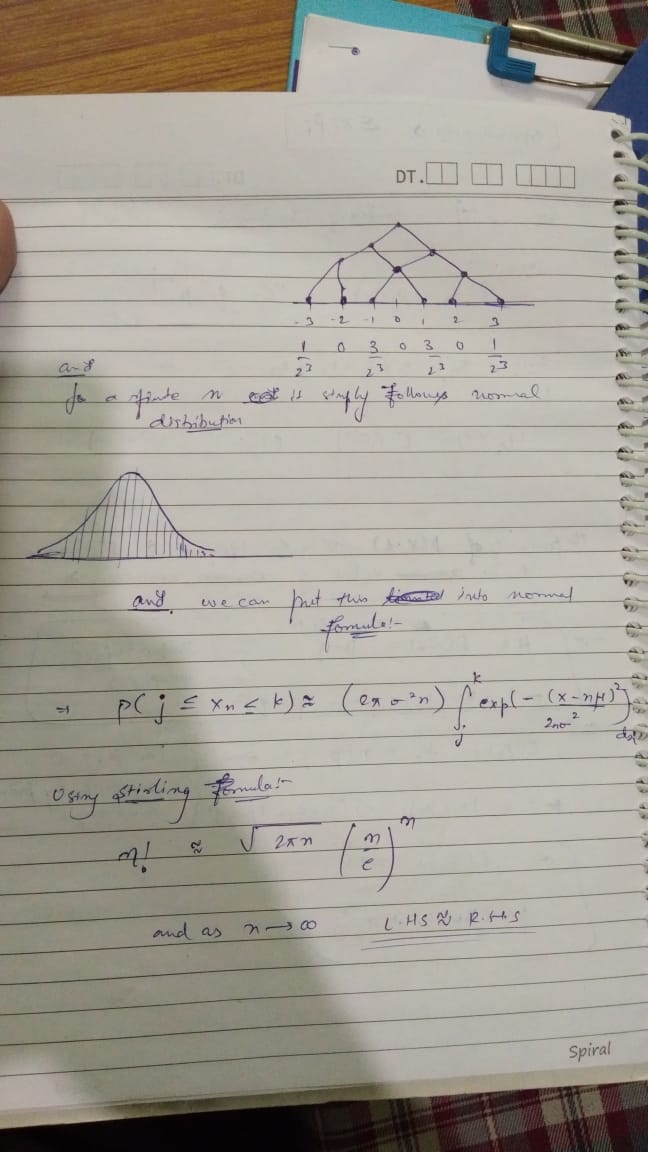 DT.
-3 -2 -1 0 1 2 3
1/2³ 0 3/2³ 0 3/2³ 0 1/2³
and
for a finite n is simply follows normal
distribution
and we can put this into normal
formula:-
⇒ P( j ≤ Xn ≤ k) ≈ (2πσ²n) ∫_j^k exp(- (x-nμ)²/2nσ²) dx
Using stirling formula:-
n! ≈ √2πn (n/e)^n
and as n → ∞ L.H.S ≈ R.H.S
Spiral